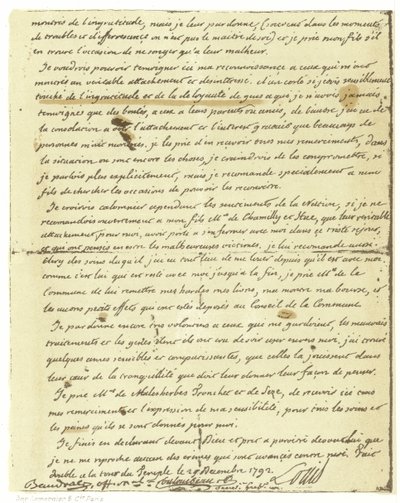 montrés de l'ingratitude, mais je leur pardonne, (souvent dans les moments
de troubles et d'effervescence on n'est pas le maitre de soi) et je prie mon fils s'il
en trouve l'occasion de ne songer qu'a leur malheur.
Je voudrois pouvoir temoigner ici ma reconnoissance a ceux qui m'ont
montrés un veritable attachement et desinteressé. d'un coté si j'etois sensiblement
touché de l'ingratitude et de la deloyauté de gens a qui je n'avois jamais
temoignes que des bontés, a eux a leurs parents ou amis, de l'autre, j'ai eu de
la consolation a voir l'attachement et l'interet gratuit que beaucoup de
personnes m'ont montrés. je les prie d'en recevoir tous mes remerciments, dans
la situation ou sont encore les choses, je craindrois de les compromettre, si
je parlois plus explicitement, mais je recomande specialement a mon
fils de chercher les occasions de pouvoir les reconnoitre.
Je croirois calomnier cependant les sentiments de la Nation, si je ne
recomandois ouvertement a mon fils Mrs de Chamilly et Hue, que leur veritable
attachement pour moi, avoit portés a s'enfermer avec moi dans ce triste sejour,
et qui ont pensés en etre les malheureuses victimes, je lui recomande aussi
Clery des soins duquel j'ai eu tout lieu de me louer depuis qu'il est avec moi
comme c'est lui qui est resté avec moi jusqu'a la fin, je prie Mrs de la
Commune de lui remettre mes hardes mes livres, ma montre ma bourse, et
les autres petits effets qui ont eté deposés au Conseil de la Commune.
Je pardonne encore tres volontiers a ceux qui me gardoient, les mauvais
traitements et les gesnes dont ils ont cru devoir user envers moi, j'ai trouvé
quelques ames sensibles et compatissantes, que celles la jouissent dans
leur coeur de la tranquillité que doit leur donner leur façon de penser.
Je prie Mrs de Malesherbes Tronchet et de Seze, de recevoir ici tous
mes remerciments et l'expression de ma sensibilité, pour tous les soins et
les peines qu'ils se sont donnés pour moi.
Je finis en declarant devant Dieu et pret a paroitre devant lui que
je ne me reproche aucun des crimes qui sont avancés contre moi. Fait
double a la tour du Temple le 25 Decembre 1792.
Louis
Baudrais, off. m.
Coulombeau